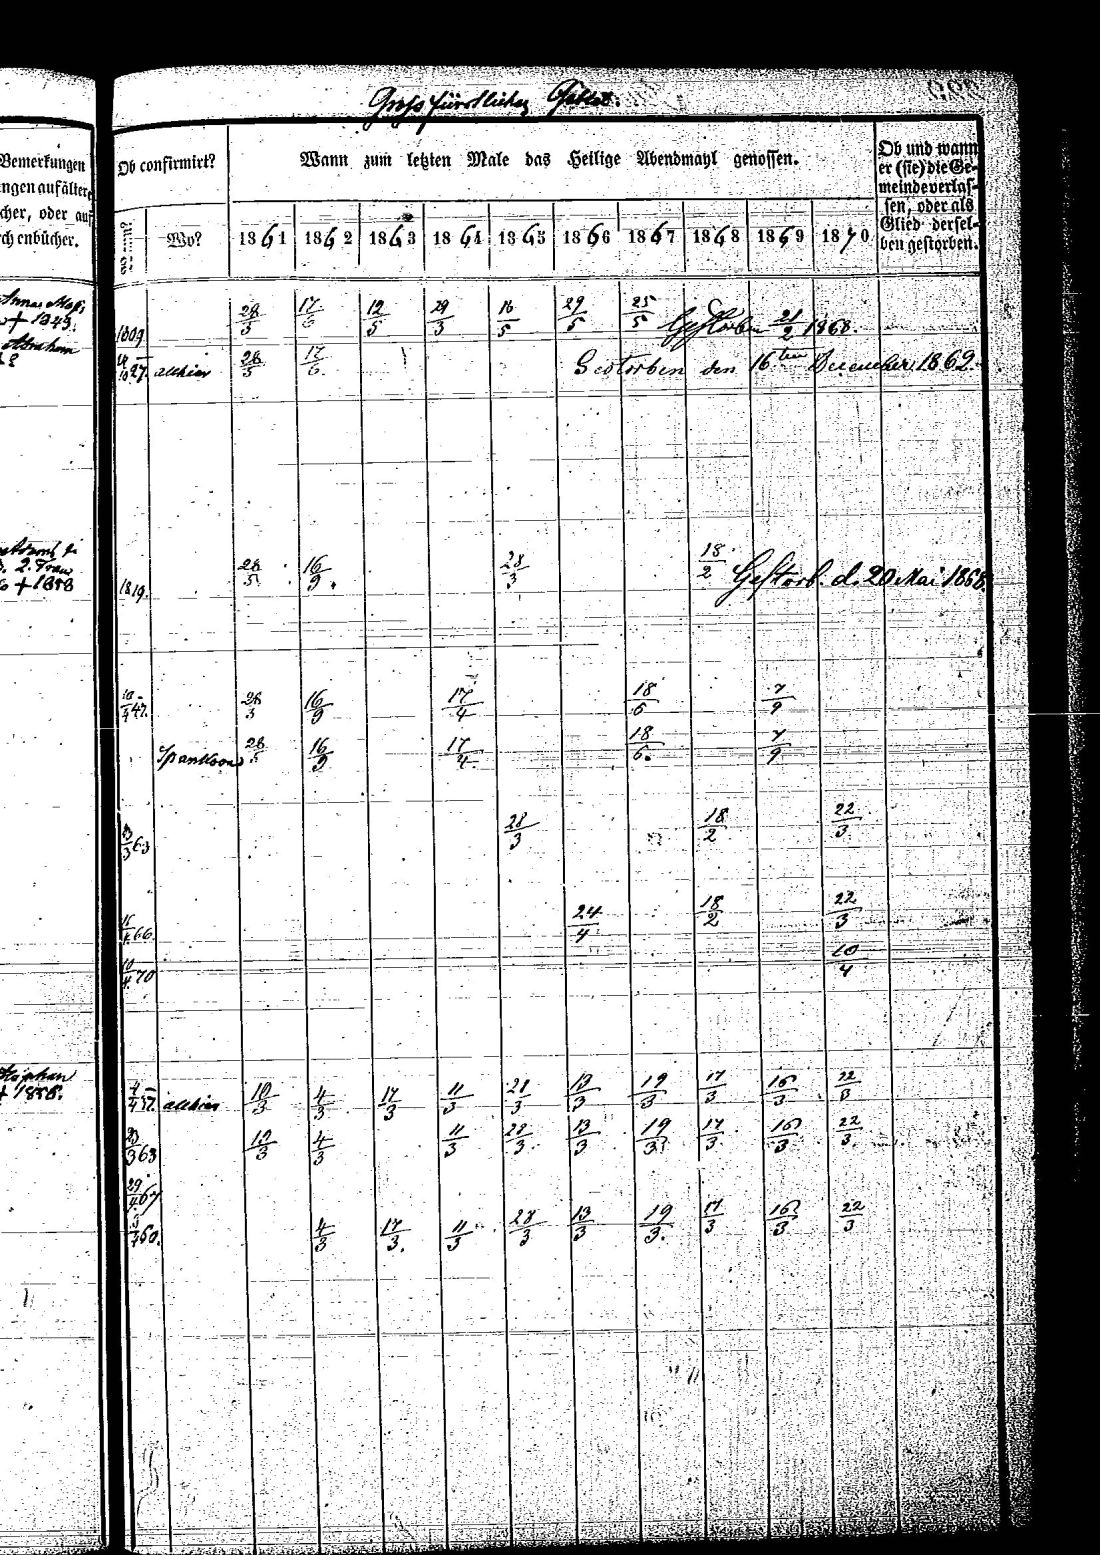 Großfürstlicher Gebiet.
Bemerkungen
ngen auf ältere
cher, oder auf
rchenbücher.
Ob confirmirt?
Wann zum letzten Male das Heilige Abendmahl genossen.
Ob und wann
er (sie) die Ge-
meinde verlas-
sen, oder als
Glied dersel-
ben gestorben.
Wo?
1861 1862 1863 1864 1865 1866 1867 1868 1869 1870
+ 1849.
1809 28/3 17/6 12/5 29/3 16/5 29/5 25/5 Gestorben 21/2 1868.
Abraham
27. allhier 28/5 17/6 Gestorben den 16ten December 1869.
2. Frau
+ 1858
1819. 28/5 16/9. 28/3 18/2 Gestorb. d. 20 Mai 1868.
47. 28/3 16/9 17/4 18/6 7/9
28/5 16/9 17/4. 18/6. 7/9
63 28/3 18/2 22/3
66. 24/4 18/2 22/3
10/4 70 10/4
Stephan
57. allhier 10/3 4/3 17/3 11/3 21/3 13/3 19/3 17/3 16/3 22/3
63 10/3 4/3 11/3 28/3 13/3 19/3 17/3 16/3 22/3.
29/4 67
60. 4/3 17/3. 11/3 28/3 13/3 19/3. 17/3 16/3 22/3